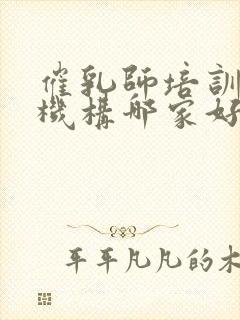 催乳師培訓
機構哪家好
平平凡凡的木